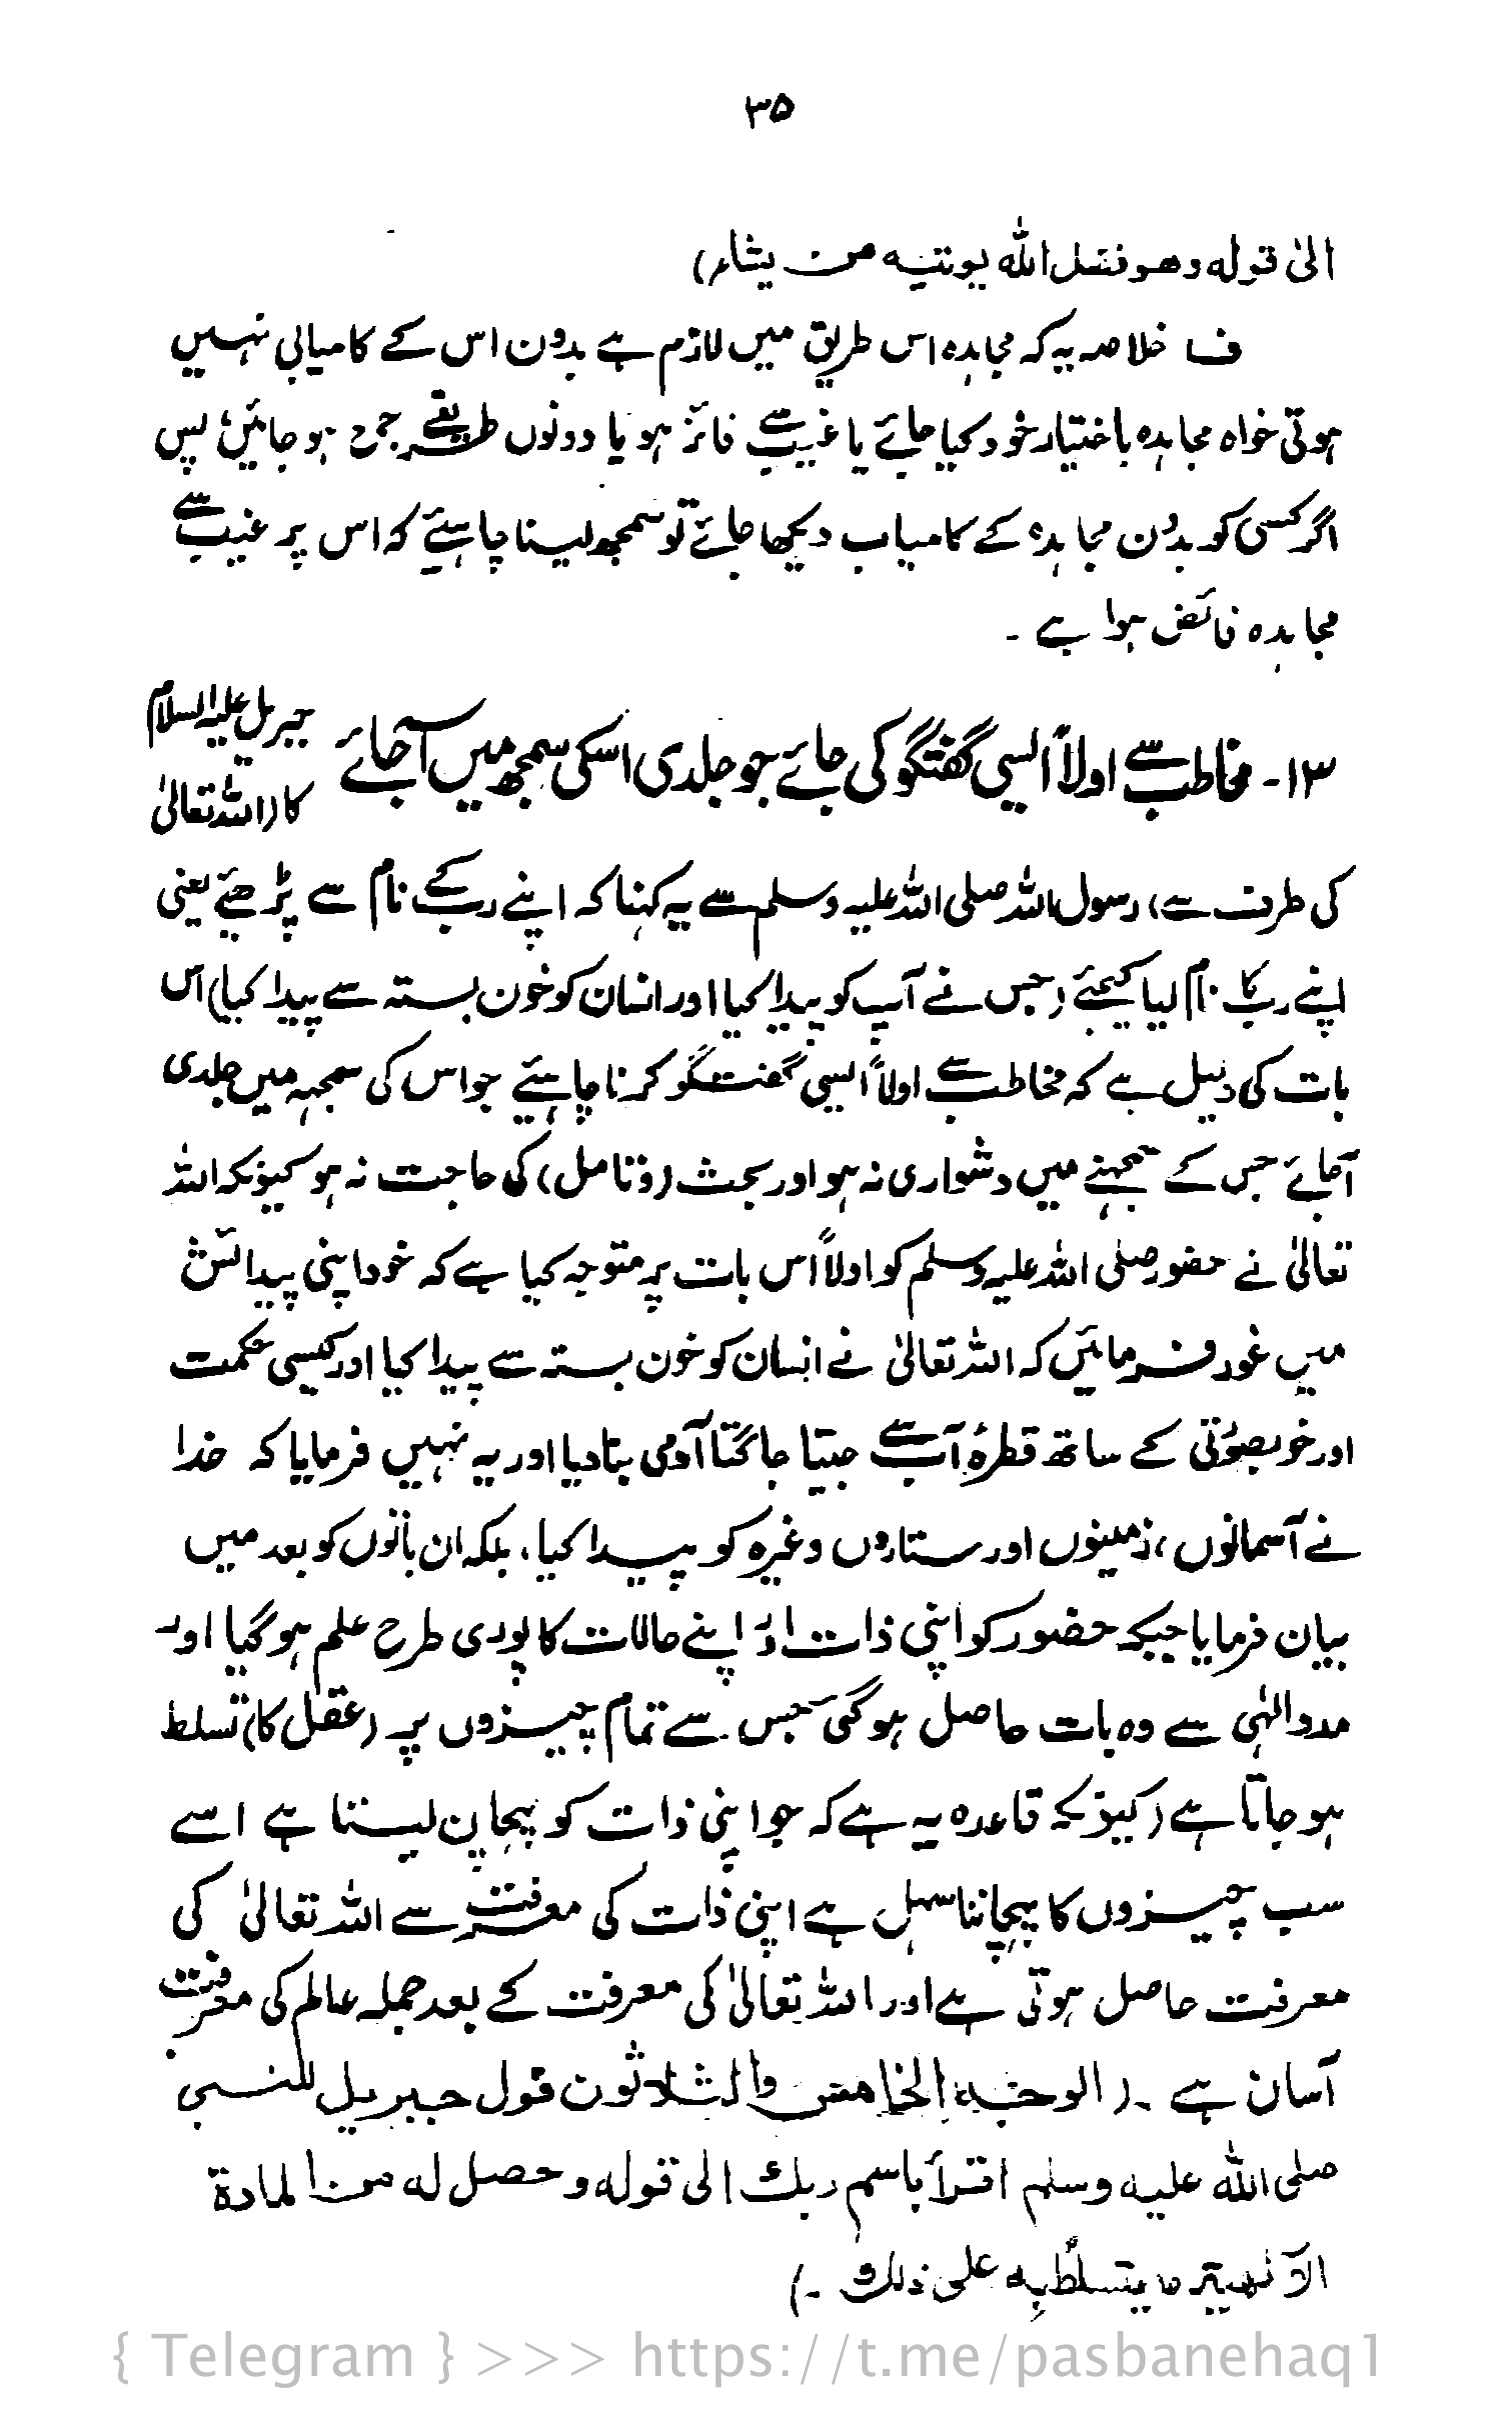 ۳۵
الیٰ قوله وهو فضل الله یوتیه من یشاء)
ف خلاصہ یہ کہ مجاہدہ اس طریق میں لازم ہے بدون اس کے کامیابی نہیں
ہوتی خواہ مجاہدہ باختیار خود کیا جائے یا غیب سے فائز ہو یا دونوں طریقے جمع ہو جائیں، پس
اگر کسی کو بدون مجاہدہ کے کامیاب دیکھا جائے تو سمجھ لینا چاہئے کہ اس پر غیب سے
مجاہدہ فائض ہوا ہے ۔
۱۳۔ مخاطب سے اولاً ایسی گفتگو کی جائے جو جلدی اسکی سمجھ میں آجائے جبریل علیہ السلام
کا (اللہ تعالیٰ
کی طرف سے) رسول اللہ صلی اللہ علیہ وسلم سے یہ کہنا کہ اپنے رب کے نام سے پڑھئے یعنی
اپنے رب کا نام لیا کیجئے (جس نے آپ کو پیدا کیا اور انسان کو خون بستہ سے پیدا کیا) اس
بات کی دلیل ہے کہ مخاطب سے اولاً ایسی گفتگو کرنا چاہئے جو اس کی سمجہہ میں جلدی
آجائے جس کے سمجہنے میں دشواری نہ ہو اور بحث (و تامل) کی حاجت نہ ہو کیونکہ اللہ
تعالیٰ نے حضور صلی اللہ علیہ وسلم کو اولاً اس بات پر متوجہ کیا ہے کہ خود اپنی پیدائش
میں غور فرمائیں کہ اللہ تعالیٰ نے انسان کو خون بستہ سے پیدا کیا اور کیسی حکمت
اور خوبصورتی کے ساتھ قطرۂ آب سے جیتا جاگتا آدمی بنا دیا اور یہ نہیں فرمایا کہ خدا
نے آسمانوں، زمینوں اور ستاروں وغیرہ کو پیدا کیا، بلکہ ان باتوں کو بعد میں
بیان فرمایا جبکہ حضور کو اپنی ذات اور اپنے حالات کا پوری طرح علم ہو گیا اور
مدد الہٰی سے وہ بات حاصل ہو گئی جس سے تمام چیزوں پر (عقل کا) تسلط
ہو جاتا ہے (کیونکہ قاعدہ یہ ہے کہ جو اپنی ذات کو پہچان لیتا ہے اسے
سب چیزوں کا پہچاننا سہل ہے اپنی ذات کی معرفت سے اللہ تعالیٰ کی
معرفت حاصل ہوتی ہے اور اللہ تعالیٰ کی معرفت کے بعد جملہ عالم کی معرفت
آسان ہے ۔ (الوجه الخامس والثلاثون قول جبریل للنبی
صلی الله علیه وسلم اقرأ باسم ربك الی قوله وحصل له من المادة
الآلهیة ما یتسلط به علی ذلك ۔)
{ Telegram } >>> https://t.me/pasbanehaq1